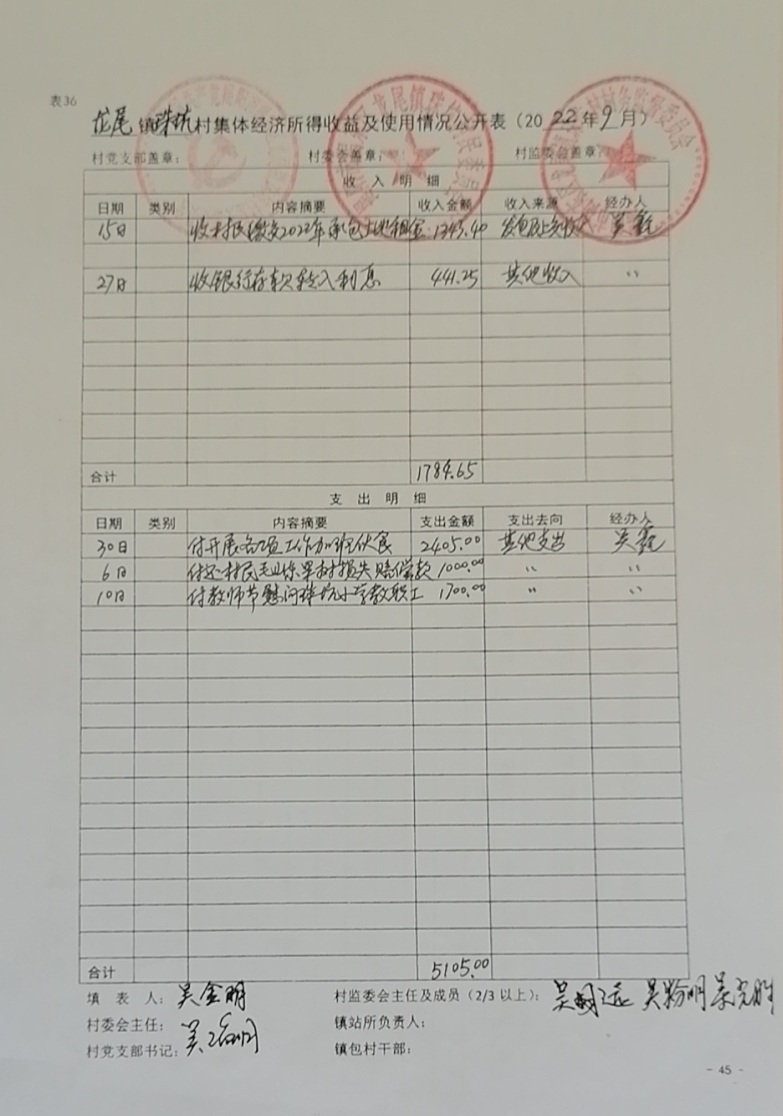 表36
龙尾镇珠坑村集体经济所得收益及使用情况公开表（2022年9月）
村党支部盖章： 村委会盖章： 村监委会盖章：
收入明细
日期 类别 内容摘要 收入金额 收入来源 经办人
15日 收村民缴交2022年承包土地租金 1343.40 发包及上交收入 吴鑫
27日 收银行存款转入利息 441.25 其他收入 〃
合计 1784.65
支出明细
日期 类别 内容摘要 支出金额 支出去向 经办人
30日 付开展各项工作加班伙食 2405.00 其他支出 吴鑫
6日 付还村民 果树损失赔偿款 1000.00 〃 〃
10日 付教师节慰问珠坑小学教职工 1700.00 〃 〃
合计 5105.00
填表人：吴金明 村监委会主任及成员（2/3以上）：
村委会主任： 镇站所负责人：
村党支部书记： 镇包村干部：
- 45 -